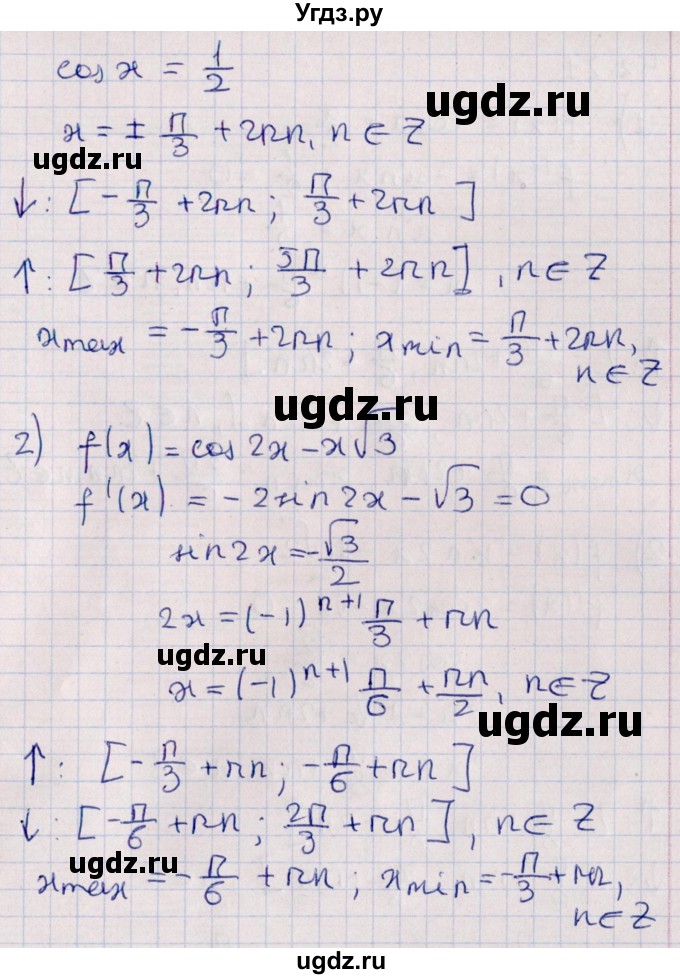 Угдз.ру
cos x = 1/2
ugdz.ru
x = ± π/3 + 2πn, n ∈ Z
ugdz.ru
↓: [-π/3 + 2πn; π/3 + 2πn]
↑: [π/3 + 2πn; 5π/3 + 2πn], n ∈ Z
xmax = -π/3 + 2πn; xmin = π/3 + 2πn,
n ∈ Z
ugdz.ru
2) f(x) = cos 2x - x√3
f'(x) = -2sin 2x - √3 = 0
sin 2x = -√3/2
2x = (-1)^(n+1) π/3 + πn
ugdz.ru
x = (-1)^(n+1) π/6 + πn/2, n ∈ Z
ugdz.ru
↑: [-π/3 + πn; -π/6 + πn]
↓: [-π/6 + πn; 2π/3 + πn], n ∈ Z
ugdz.ru
xmax = -π/6 + πn; xmin = -π/3 + πn,
n ∈ Z
ugdz.ru